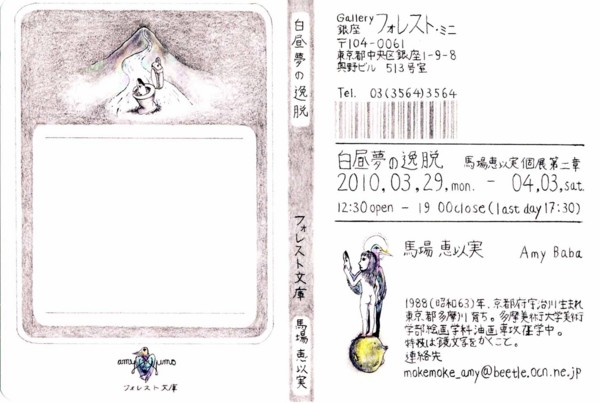 白昼夢の逸脱
フォレスト文庫
馬場 恵以実
フォレスト文庫
Gallery
銀座 フォレスト・ミニ
〒104-0061
東京都中央区銀座1-9-8
奥野ビル 513号室
Tel. 03(3564)3564
白昼夢の逸脱 馬場恵以実個展第二章
2010,03,29,mon. - 04,03,sat.
12:30open - 19 00close(last day 17:30)
馬場 恵以実 Amy Baba
1988(昭和63)年、京都府宇治川生まれ
東京都多摩川育ち。多摩美術大学美術
学部絵画学科油画専攻在学中。
特技は鏡文字をかくこと。
連絡先
mokemoke_amy@beetle.ocn.ne.jp